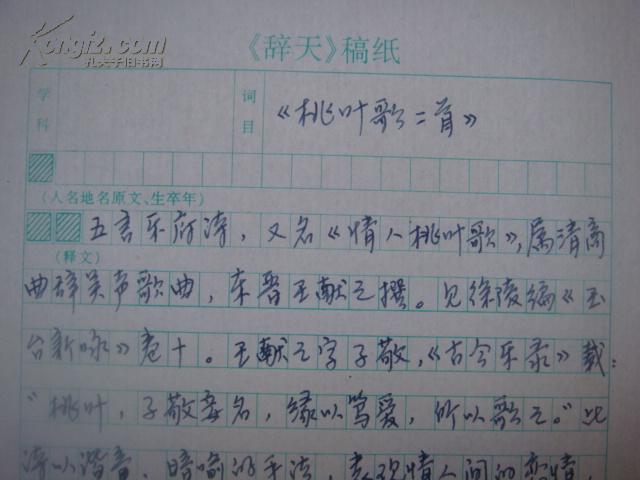 Kongfz.com
孔夫子旧书网
《辞天》稿纸
学科
词目
《桃叶歌二首》
(人名地名原文、生卒年)
五言乐府诗，又名《情人桃叶歌》，属清商
(释文)
曲辞吴声歌曲，东晋王献之撰。见徐陵编《玉
台新咏》卷十。王献之字子敬，《古今乐录》载：
“桃叶，子敬妾名，缘以笃爱，所以歌之。”此
诗以谐音、暗喻的手法，表现情人间的恋情，